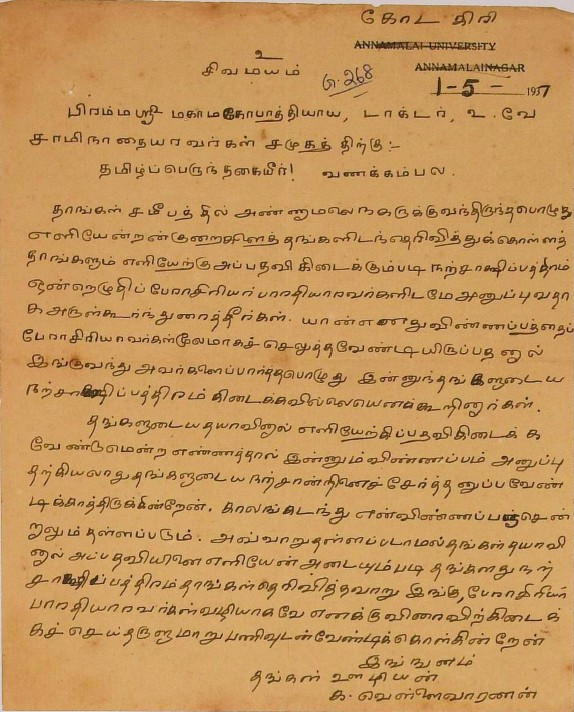 கோடகிரி
ANNAMALAI UNIVERSITY
ANNAMALAINAGAR
உ
சிவமயம்
கு. 268
1-5-1937
பிரம்மஸ்ரீ மகாமகோபாத்தியாய, டாக்டர், உ. வே
சாமிநாதையரவர்கள் சமுகத்திற்கு:-
தமிழ்ப்பெருந்தகையீர்! வணக்கம்பல.
தாங்கள் சமீபத்தில் அண்ணாமலைநகருக்குவந்திருந்தபொழுது
எளியேன்றன்குறைகளைத்தங்களிடந்தெரிவித்துக்கொள்ளத்
தாங்களும் எளியேற்கு அப்பதவி கிடைக்கும்படி நற்சாக்ஷிப்பத்திரம்
ஒன்றெழுதிப் பேராசிரியர் பாரதியாரவர்களிடமே அனுப்புவதா
க அருள்கூர்ந்துரைத்தீர்கள். யான்எனதுவிண்ணப்பத்தைப்
பேராசிரியரவர்கள்மூலமாகச் செலுத்தவேண்டியிருப்பதனால்
இங்குவந்து அவர்களைப்பார்த்தபொழுது இன்னுந்தங்களுடைய
நற்சாக்ஷிப்பத்திரம்கிடைக்கவில்லையெனக்கூறினார்கள்.
தங்களுடையதயாவினால் எளியேற்கிப்பதவிகிடைக்க
வேண்டுமென்றஎண்ணத்தால் இன்னும்விண்ணப்பம் அனுப்பு
தற்கியலாதுதங்களுடைய நற்சான்றினைச் சேர்த்தனுப்பவேண்
டிக்காத்திருக்கின்றேன். காலங்கடந்து என்விண்ணப்பஞ்சென்
றாலும்தள்ளப்படும். அவ்வாறுதள்ளப்படாமல்தங்கள்தயாவி
னால் அப்பதவியினைஎளியேன் அடையும்படி தங்களதுநற்
சாக்ஷிப்பத்திரம்தாங்கள்தெரிவித்தவாறு இங்கு, பேராசிரியர்
பாரதியாரவர்கள்வழியாகவே எனக்குவிரைவிற்கிடைக்
கச் செய்தருளுமாறுபணிவுடன்வேண்டிக்கொள்கின்றேன்
இங்ஙனம்
தங்கள் ஊழியன்
க. வெள்ளைவாரணன்